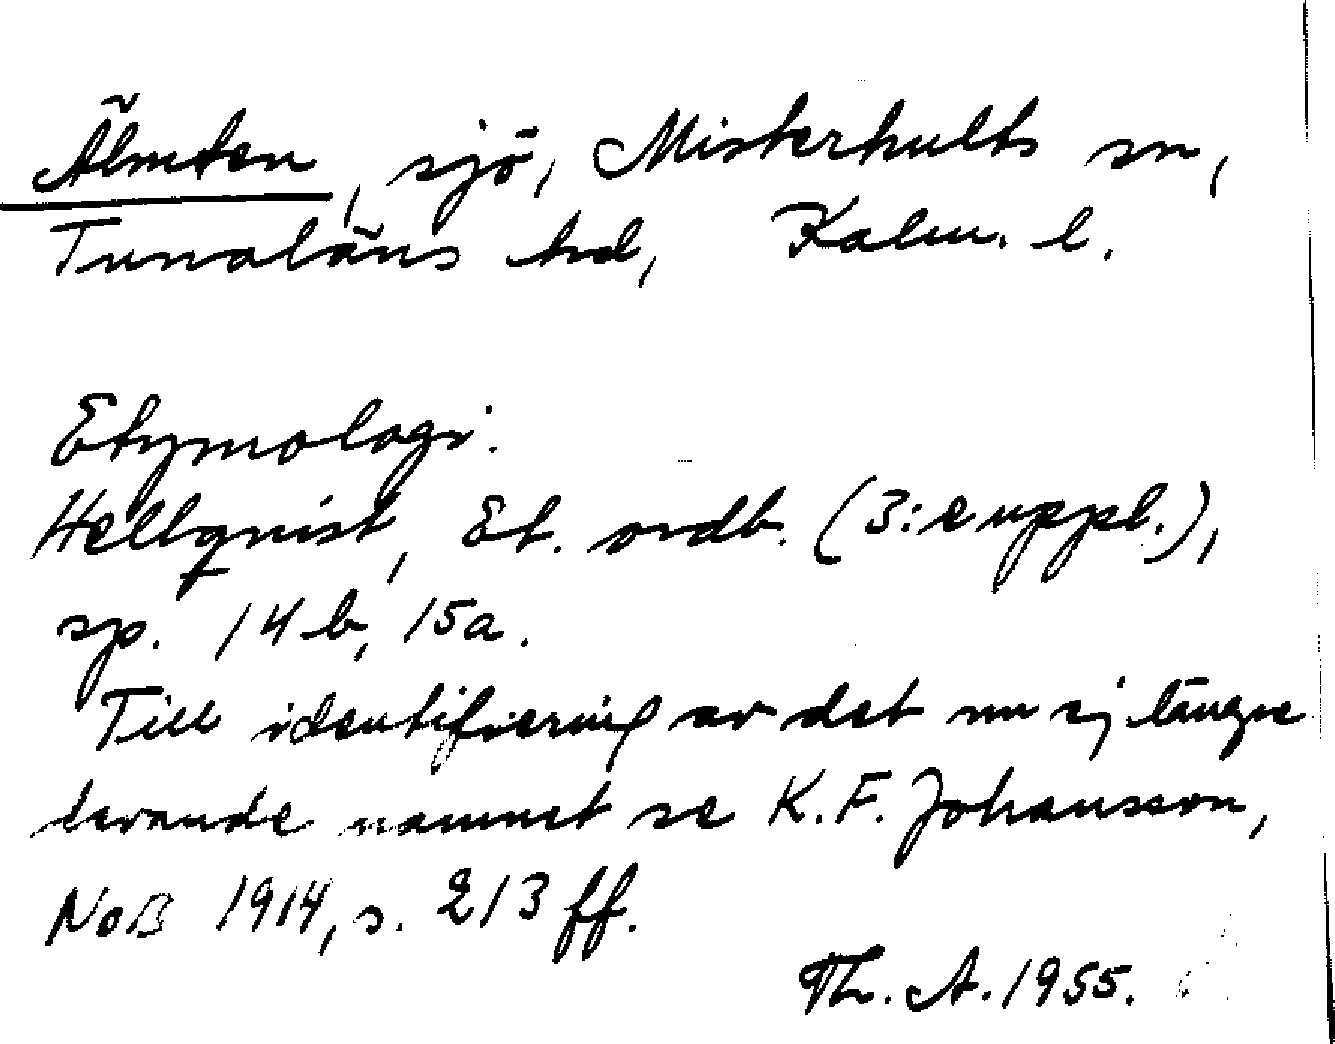 Älmten, sjö, Misterhults sn,
Tunaläns hd, Kalm. l.
Etymologi.
Hellquist, Et. ordb. (3:e uppl.),
sp. 14 b, 15a.
Till identifiering av det nu ej längre
levande namnet se K.F. Johansson,
NoB 1914, s. 213 ff.
Th. A. 1955.